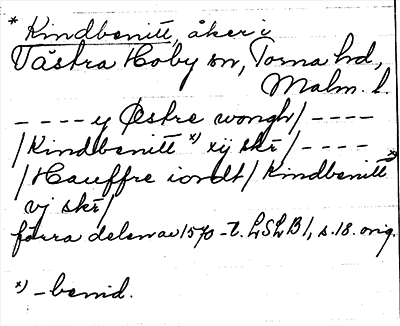 * Kindbenitt, åker i
Västra Hoby sn, Torna hd,
Malm. l.
---- y Østre wongh/ ----
/Kindbenitt x) xij skr/ ----
/Hauffre iordt/ Kindbenitt x)
vj skr/
förra delen av 1570-t. LSLB 1, s. 18. orig.
x) -benid.